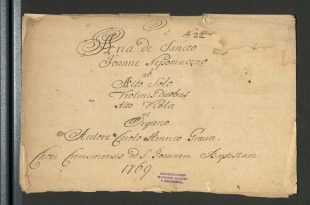 4.22
Aria de Sancto
Joanne Nepomuceno
ab
Alto Solo
Violinis Duobus
Alto Viola
et
Organo
Autore Carolo Henrico Graun.
Chori Crumsinensis ad S. Joannem Baptistam
1769.